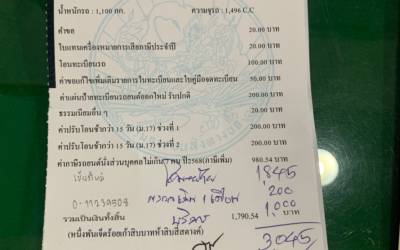 น้ำหนักรถ : 1,100 กก. ความจุรถ : 1,496 C.C
ค่าขอ 20.00 บาท
ใบแทนเครื่องหมายการเสียภาษีประจำปี 20.00 บาท
โอนทะเบียนรถ 100.00 บาท
ค่าขอแก้ไขเพิ่มเติมรายการในทะเบียนและใบคู่มือจดทะเบียน 50.00 บาท
ค่าแผ่นป้ายทะเบียนรถยนต์ออกใหม่ รับปกติ 200.00 บาท
ธรรมเนียมอื่น ๆ 20.00 บาท
ค่าปรับโอนช้ากว่า 15 วัน (ม.17) ช่วงที่ 1 200.00 บาท
ค่าปรับโอนช้ากว่า 15 วัน (ม.17) ช่วงที่ 2 200.00 บาท
ค่าภาษีรถยนต์นั่งส่วนบุคคลไม่เกิน 7 คน ปี2568(ภาษีเพิ่ม) 980.54 บาท
1,845
200
1,000 บาท
รวมเป็นเงินทั้งสิ้น บริการ 1,790.54
(หนึ่งพันเจ็ดร้อยเก้าสิบบาทห้าสิบสี่สตางค์)
3045